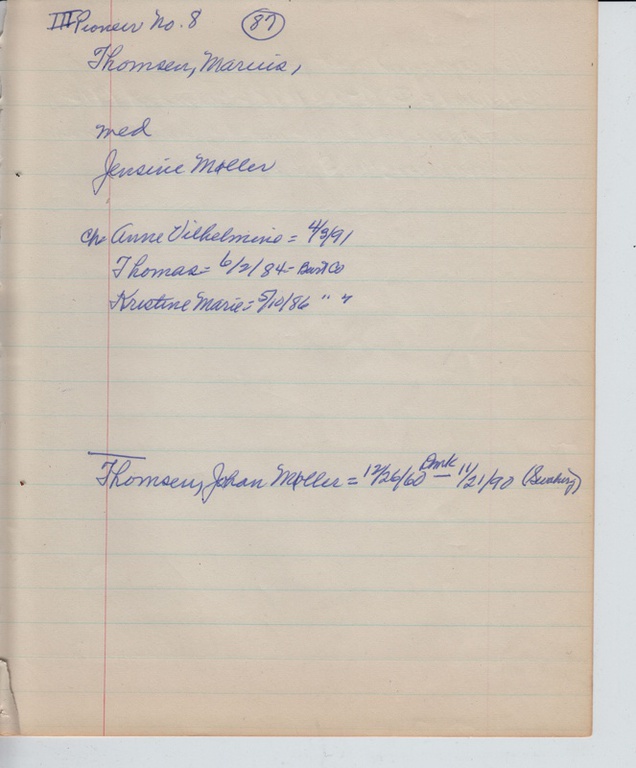 III Pioneer No. 8 87
Thomsen, Marius,
med
Jensine Møller
ch= Anne Vilhelmine = 4/3/91
Thomas = 6/2/84 - Burt Co
Kristine Marie = 5/10/86 " "
Thomsen, Johan Møller = 12/26/60 Dmk — 11/21/90